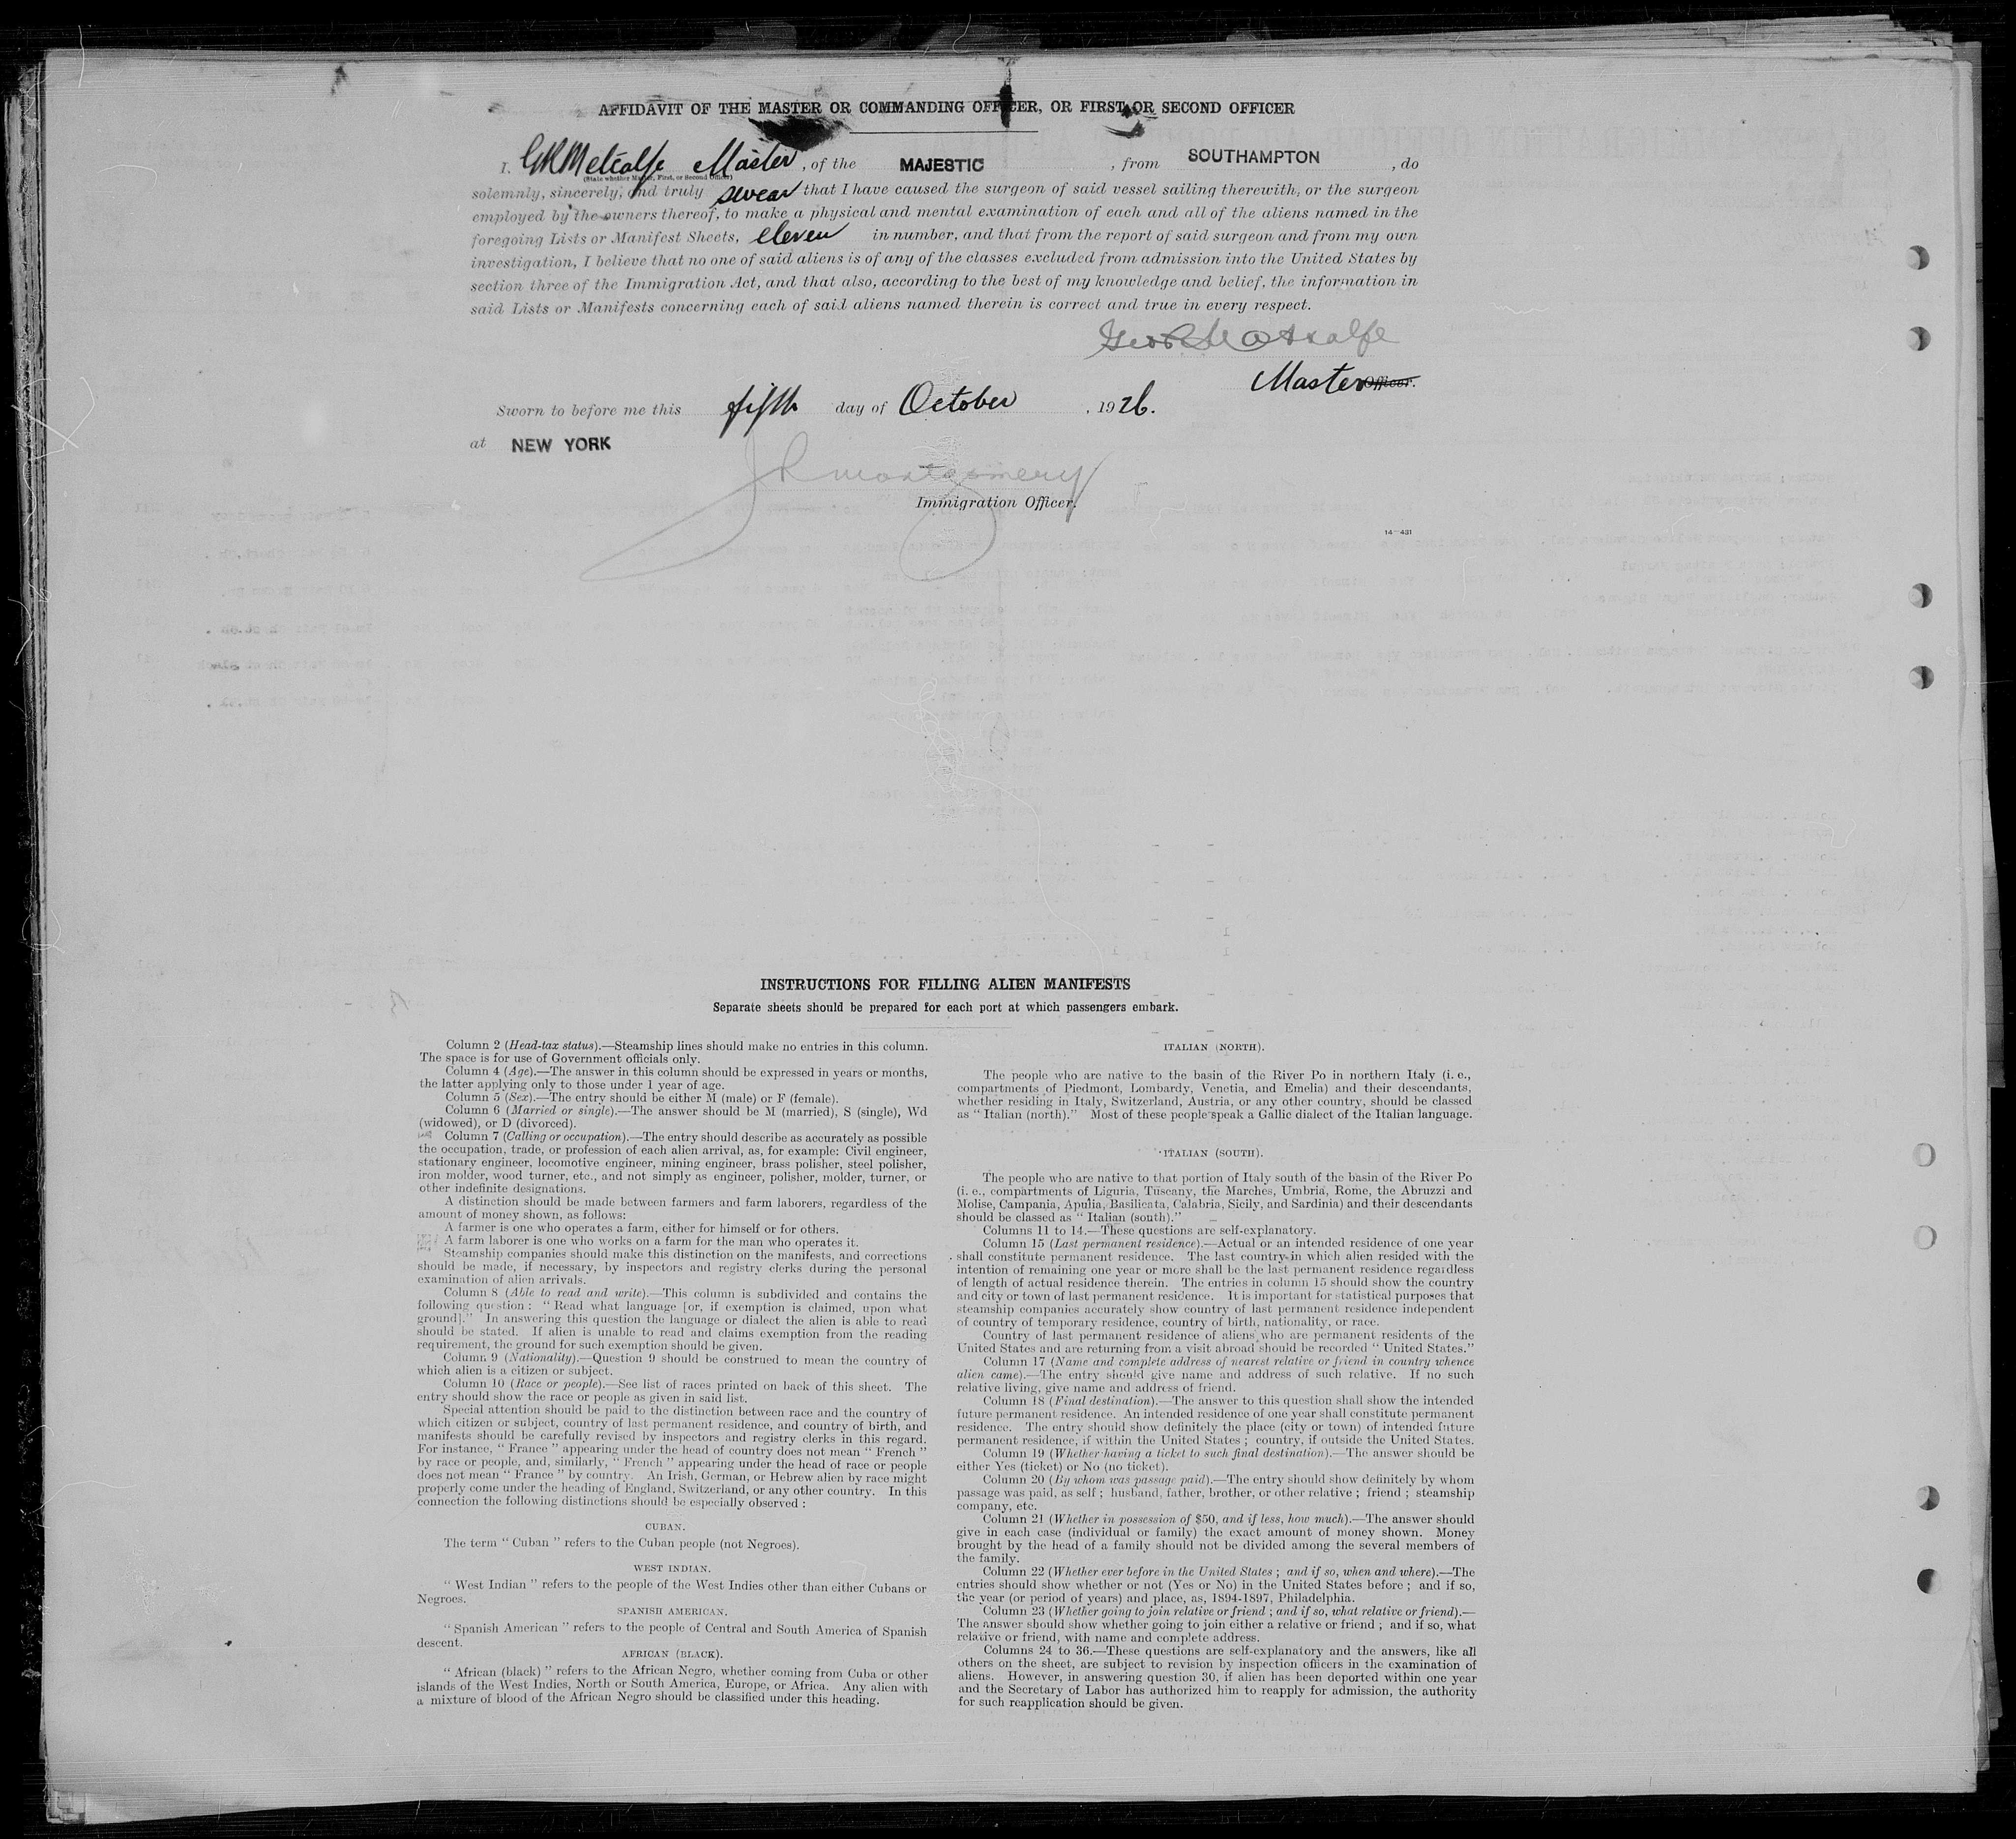 AFFIDAVIT OF THE MASTER OR COMMANDING OFFICER, OR FIRST OR SECOND OFFICER
I, GRMetcalfe Master, of the MAJESTIC, from SOUTHAMPTON, do
(State whether Master, First, or Second Officer)
solemnly, sincerely, and truly swear that I have caused the surgeon of said vessel sailing therewith, or the surgeon
employed by the owners thereof, to make a physical and mental examination of each and all of the aliens named in the
foregoing Lists or Manifest Sheets, eleven in number, and that from the report of said surgeon and from my own
investigation, I believe that no one of said aliens is of any of the classes excluded from admission into the United States by
section three of the Immigration Act, and that also, according to the best of my knowledge and belief, the information in
said Lists or Manifests concerning each of said aliens named therein is correct and true in every respect.
Geo R Metcalfe
Master Officer.
Sworn to before me this fifth day of October, 1926.
at NEW YORK
JRmontgomery
Immigration Officer.
14—431
INSTRUCTIONS FOR FILLING ALIEN MANIFESTS
Separate sheets should be prepared for each port at which passengers embark.
Column 2 (Head-tax status).—Steamship lines should make no entries in this column.
The space is for use of Government officials only.
Column 4 (Age).—The answer in this column should be expressed in years or months,
the latter applying only to those under 1 year of age.
Column 5 (Sex).—The entry should be either M (male) or F (female).
Column 6 (Married or single).—The answer should be M (married), S (single), Wd
(widowed), or D (divorced).
Column 7 (Calling or occupation).—The entry should describe as accurately as possible
the occupation, trade, or profession of each alien arrival, as, for example: Civil engineer,
stationary engineer, locomotive engineer, mining engineer, brass polisher, steel polisher,
iron molder, wood turner, etc., and not simply as engineer, polisher, molder, turner, or
other indefinite designations.
A distinction should be made between farmers and farm laborers, regardless of the
amount of money shown, as follows:
A farmer is one who operates a farm, either for himself or for others.
A farm laborer is one who works on a farm for the man who operates it.
Steamship companies should make this distinction on the manifests, and corrections
should be made, if necessary, by inspectors and registry clerks during the personal
examination of alien arrivals.
Column 8 (Able to read and write).—This column is subdivided and contains the
following question: "Read what language [or, if exemption is claimed, upon what
ground]." In answering this question the language or dialect the alien is able to read
should be stated. If alien is unable to read and claims exemption from the reading
requirement, the ground for such exemption should be given.
Column 9 (Nationality).—Question 9 should be construed to mean the country of
which alien is a citizen or subject.
Column 10 (Race or people).—See list of races printed on back of this sheet. The
entry should show the race or people as given in said list.
Special attention should be paid to the distinction between race and the country of
which citizen or subject, country of last permanent residence, and country of birth, and
manifests should be carefully revised by inspectors and registry clerks in this regard.
For instance, "France" appearing under the head of country does not mean "French"
by race or people, and, similarly, "French" appearing under the head of race or people
does not mean "France" by country. An Irish, German, or Hebrew alien by race might
properly come under the heading of England, Switzerland, or any other country. In this
connection the following distinctions should be especially observed:
CUBAN.
The term "Cuban" refers to the Cuban people (not Negroes).
WEST INDIAN.
"West Indian" refers to the people of the West Indies other than either Cubans or
Negroes.
SPANISH AMERICAN.
"Spanish American" refers to the people of Central and South America of Spanish
descent.
AFRICAN (BLACK).
"African (black)" refers to the African Negro, whether coming from Cuba or other
islands of the West Indies, North or South America, Europe, or Africa. Any alien with
a mixture of blood of the African Negro should be classified under this heading.
ITALIAN (NORTH).
The people who are native to the basin of the River Po in northern Italy (i. e.,
compartments of Piedmont, Lombardy, Venetia, and Emelia) and their descendants,
whether residing in Italy, Switzerland, Austria, or any other country, should be classed
as "Italian (north)." Most of these people speak a Gallic dialect of the Italian language.
ITALIAN (SOUTH).
The people who are native to that portion of Italy south of the basin of the River Po
(i. e., compartments of Liguria, Tuscany, the Marches, Umbria, Rome, the Abruzzi and
Molise, Campania, Apulia, Basilicata, Calabria, Sicily, and Sardinia) and their descendants
should be classed as "Italian (south)."
Columns 11 to 14.—These questions are self-explanatory.
Column 15 (Last permanent residence).—Actual or an intended residence of one year
shall constitute permanent residence. The last country in which alien resided with the
intention of remaining one year or more shall be the last permanent residence regardless
of length of actual residence therein. The entries in column 15 should show the country
and city or town of last permanent residence. It is important for statistical purposes that
steamship companies accurately show country of last permanent residence independent
of country of temporary residence, country of birth, nationality, or race.
Country of last permanent residence of aliens who are permanent residents of the
United States and are returning from a visit abroad should be recorded "United States."
Column 17 (Name and complete address of nearest relative or friend in country whence
alien came).—The entry should give name and address of such relative. If no such
relative living, give name and address of friend.
Column 18 (Final destination).—The answer to this question shall show the intended
future permanent residence. An intended residence of one year shall constitute permanent
residence. The entry should show definitely the place (city or town) of intended future
permanent residence, if within the United States; country, if outside the United States.
Column 19 (Whether having a ticket to such final destination).—The answer should be
either Yes (ticket) or No (no ticket).
Column 20 (By whom was passage paid).—The entry should show definitely by whom
passage was paid, as self; husband, father, brother, or other relative; friend; steamship
company, etc.
Column 21 (Whether in possession of $50, and if less, how much).—The answer should
give in each case (individual or family) the exact amount of money shown. Money
brought by the head of a family should not be divided among the several members of
the family.
Column 22 (Whether ever before in the United States; and if so, when and where).—The
entries should show whether or not (Yes or No) in the United States before; and if so,
the year (or period of years) and place, as, 1894-1897, Philadelphia.
Column 23 (Whether going to join relative or friend; and if so, what relative or friend).—
The answer should show whether going to join either a relative or friend; and if so, what
relative or friend, with name and complete address.
Columns 24 to 36.—These questions are self-explanatory and the answers, like all
others on the sheet, are subject to revision by inspection officers in the examination of
aliens. However, in answering question 30, if alien has been deported within one year
and the Secretary of Labor has authorized him to reapply for admission, the authority
for such reapplication should be given.